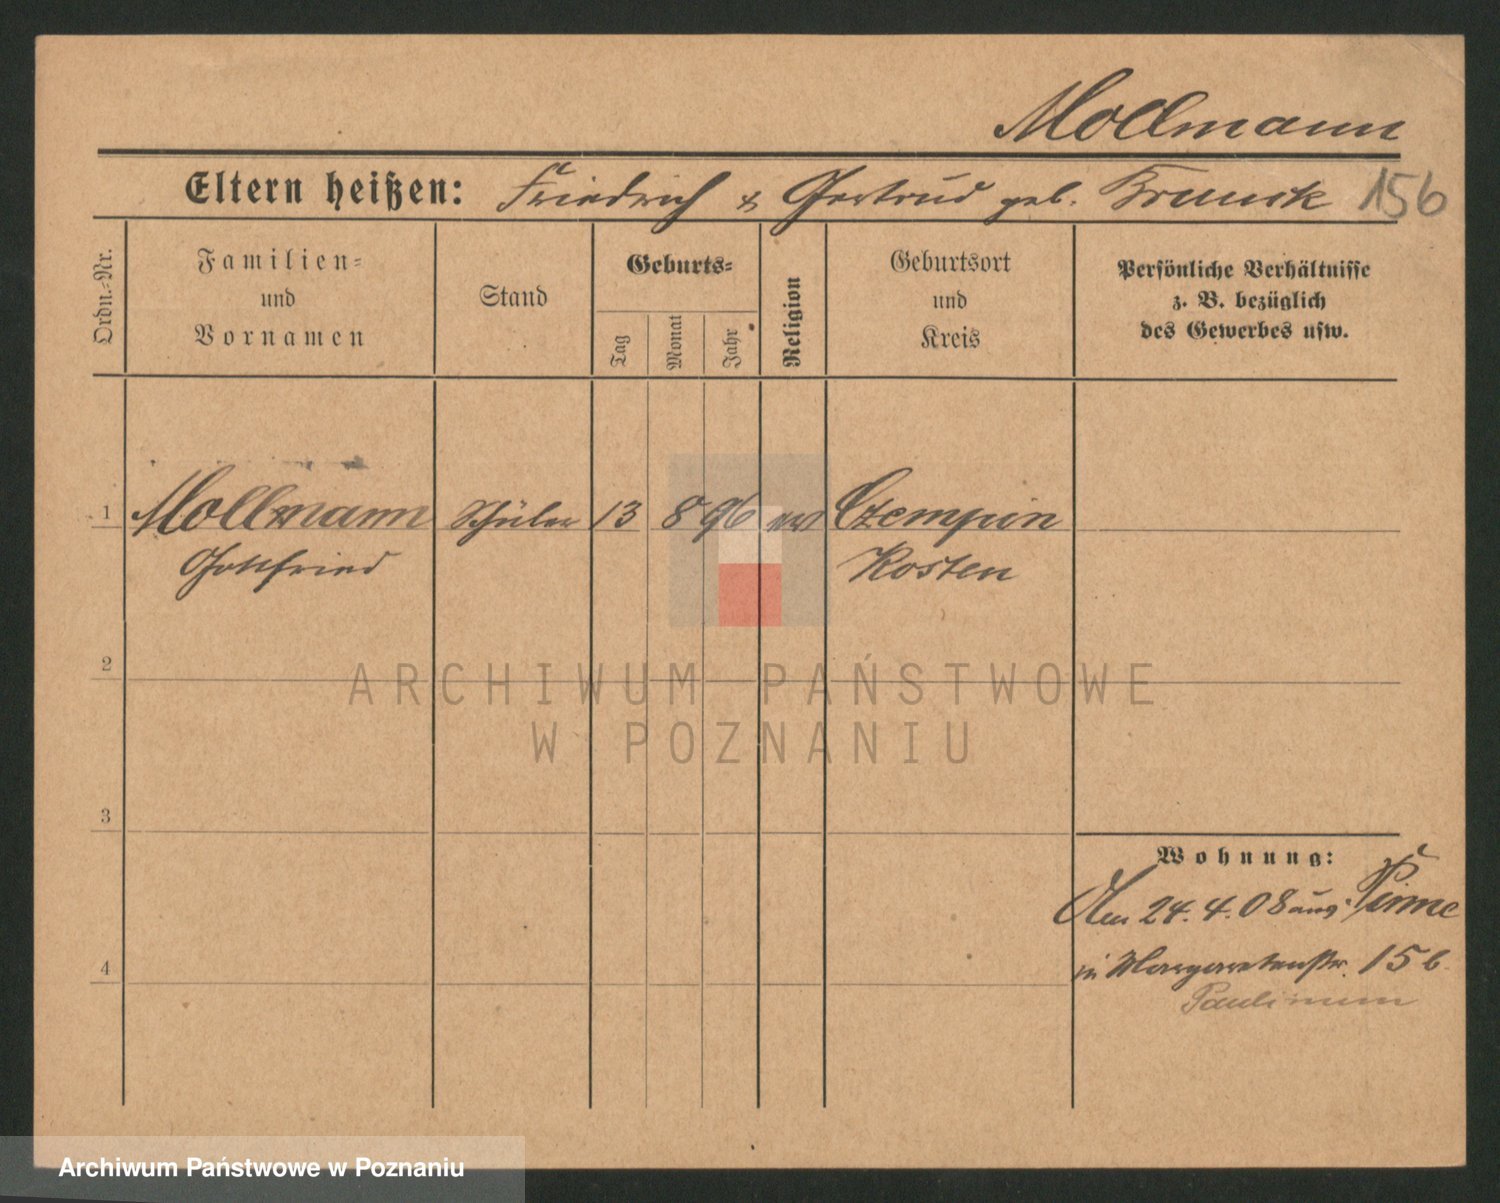 Mollmann
Eltern heißen: Friedrich & Gertrud geb. Brunck 156
Ordn.-Nr.
Familien-
und
Vornamen
Stand
Geburts-
Tag
Monat
Jahr
Religion
Geburtsort
und
Kreis
Persönliche Verhältnisse
z. B. bezüglich
des Gewerbes usw.
1 Mollmann Schüler 13 8 96 ev Czempin
Gottfried Kosten
2
ARCHIWUM PAŃSTWOWE
W POZNANIU
3
Wohnung:
Am 24.4.08 aus Pinne
4
in Margaretenstr. 15 b.
Paulinum
Archiwum Państwowe w Poznaniu